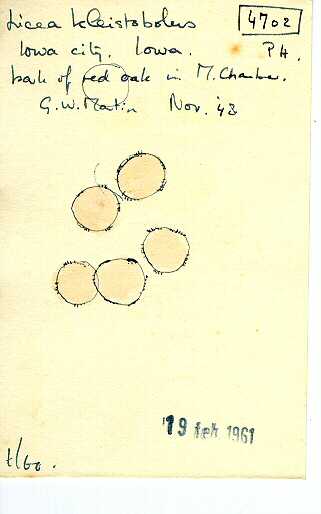 Licea kleistobolus
4702
Iowa city, Iowa.
PH.
bark of red oak in M. Chamber.
G.W. Martin Nov. '43
19 feb 1961
t/60.